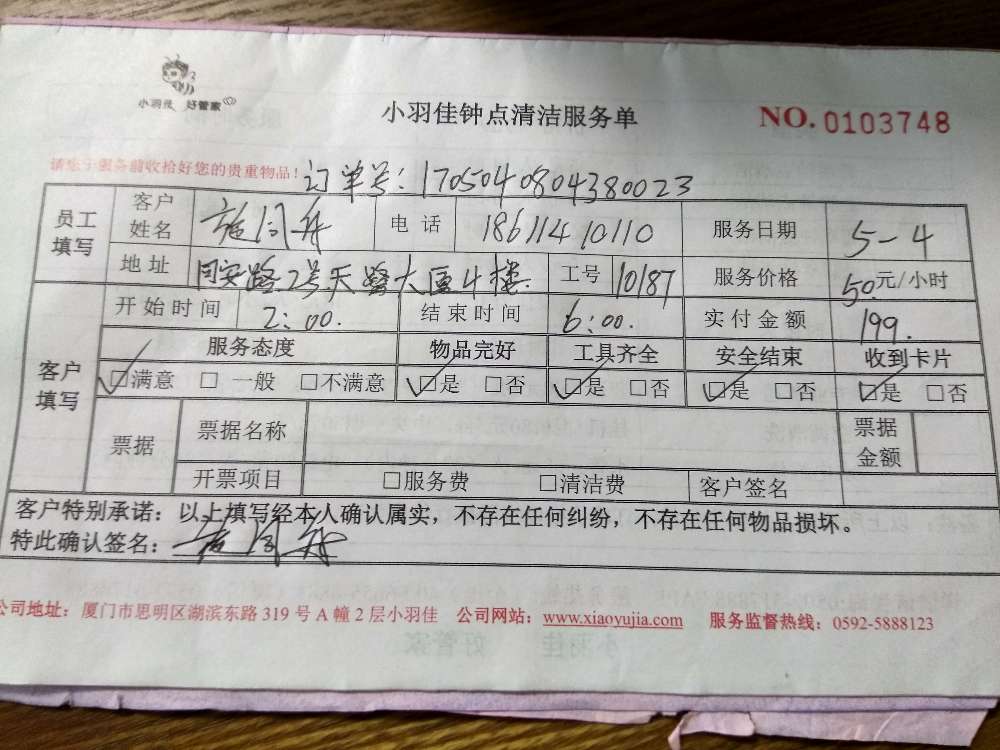 小羽佳 好管家
小羽佳钟点清洁服务单
NO. 0103748
请您于服务前收拾好您的贵重物品！ 订单号：1705040804380023
员工填写 客户姓名 施同舟 电话 18611410110 服务日期 5-4
地址 同安路2号天鹭大厦4楼 工号 10187 服务价格 50元/小时
客户填写 开始时间 2:00. 结束时间 6:00. 实付金额 199.
服务态度 物品完好 工具齐全 安全结束 收到卡片
☑满意 □一般 □不满意 ☑是 □否 ☑是 □否 ☑是 □否 ☑是 □否
票据 票据名称 票据金额
开票项目 □服务费 □清洁费 客户签名
客户特别承诺：以上填写经本人确认属实，不存在任何纠纷，不存在任何物品损坏。
特此确认签名：施同舟
公司地址：厦门市思明区湖滨东路 319 号 A 幢 2 层小羽佳 公司网站：www.xiaoyujia.com 服务监督热线：0592-5888123